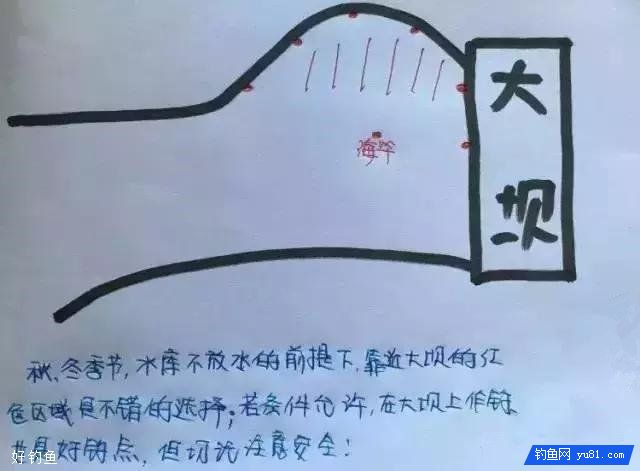 大
坝
海竿
秋、冬季节,水库不放水的前提下,靠近大坝的红
色区域是不错的选择;若条件允许,在大坝上作钓
也是好钓点,但切记注意安全!
好钓鱼
钓鱼网 yu81.com